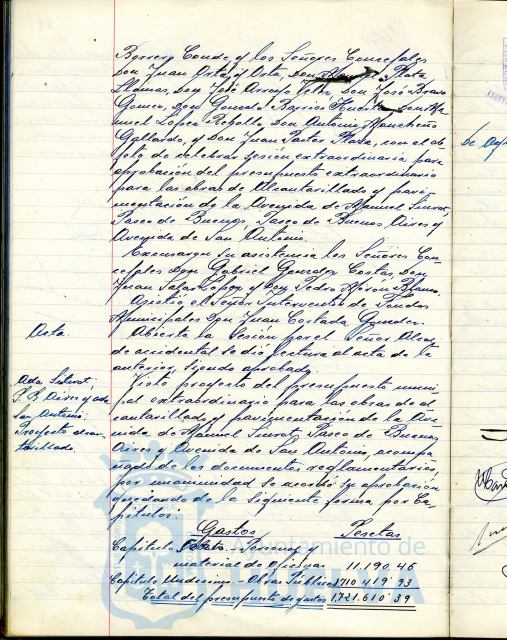 Borrero Conde y los Señores Concejales
Don Juan Orta y Orta, Don Plata
Llamas, Don José Arroyo Don José Bravo
Gomez, Don Gonzalo Barrios Don Ma-
nuel López Rebollo Don Antonio Mancheño
Gallardo, y Don Juan Pastor Plaza, con el ob-
jeto de celebrar sesión extraordinaria para
aprobación del presupuesto extraordinario
para las obras de Alcantarillado y pavi-
mentación de la Avenida de Manuel Siurot,
Paseo de Buenos, Paseo de Buenos Aires y
Avenida de San Antonio.
Excusaron su asistencia los Señores Con-
cejales Don Gabriel Gonzalez Costas, Don
Juan Salas López y Don Pedro Blanco.
Asistió el Señor Interventor de Fondos
Municipales Don Juan Cortada
Acta
Abierta la Sesión por el Señor Alcal-
de accidental se dió lectura al acta de la
anterior, siendo aprobada
Avda Siurot,
P. B. Aires y avda
San Antonio
Proyecto alcan-
tarillado.
Visto proyecto del presupuesto muni-
pal extraordinario para las obras de al-
cantarillado y pavimentación de la Ave-
nida de Manuel Siurot, Paseo de Buenos
Aires y Avenida de San Antonio, acompa-
nado de los documentos reglamentarios,
por unanimidad se acordó su aprobación
quedando de la siguiente forma por Ca-
pítulos:
Gastos Pesetas
Capitulo Personal y
material de Oficinas 11.190'46
Capitulo Undecimo - Obras Públicas 1.710.419'93
Total del presupuesto de gastos 1.721.610'39
Ayuntamiento de